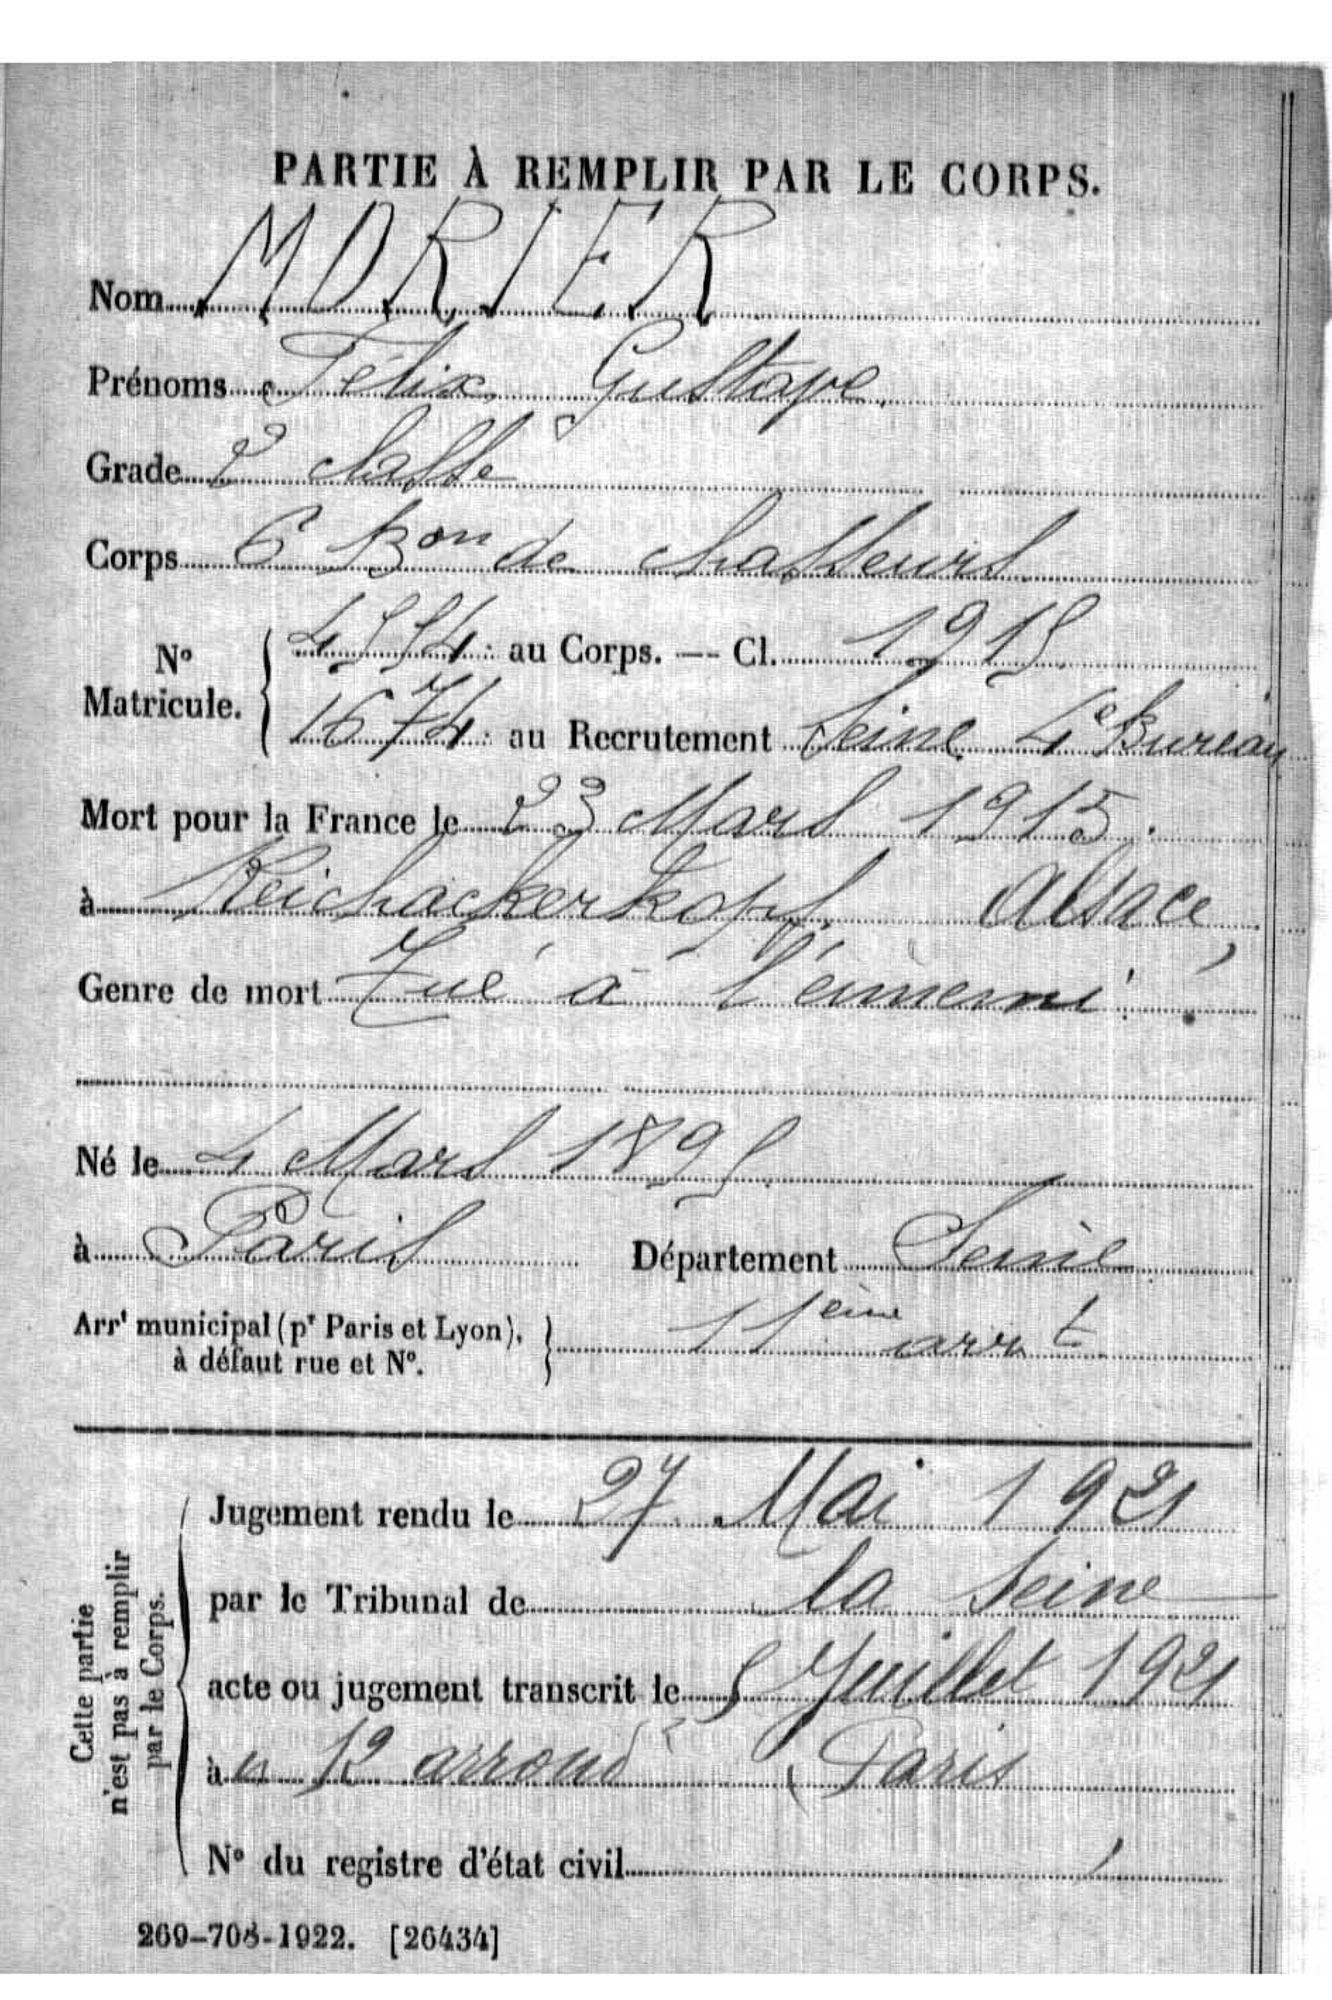 PARTIE À REMPLIR PAR LE CORPS.
Nom MORIER
Prénoms Félix Gustave
Grade 2 classe
Corps 6 Bon de chasseurs
No Matricule. { 4554 au Corps. — Cl. 1915
1674 au Recrutement Seine 4e Bureau
Mort pour la France le 23 Mars 1915.
à Reichackerkopf Alsace,
Genre de mort Tué à l'ennemi.
Né le 4 Mars 1895
à Paris Département Seine
Arrt municipal (pr Paris et Lyon), à défaut rue et No. } 11ème arrt
Cette partie n'est pas à remplir par le Corps.
Jugement rendu le 27 Mai 1921
par le Tribunal de la Seine
acte ou jugement transcrit le 5 Juillet 1921
à 12 arrond Paris
No du registre d'état civil
269-708-1922. [26434]